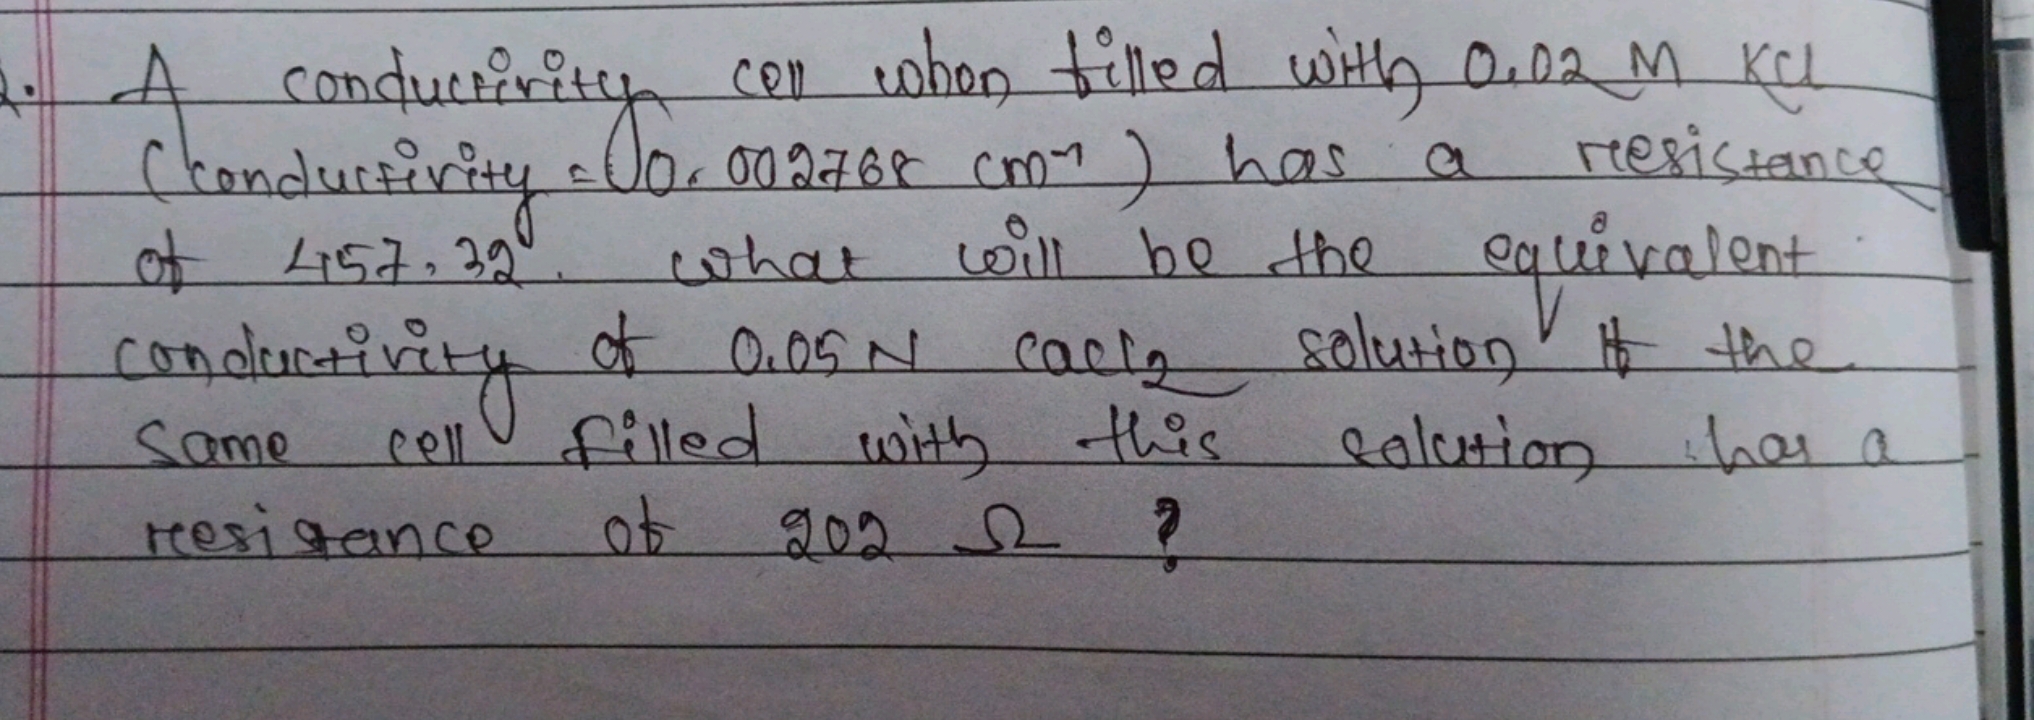 2. A conductivity cell when filled with 0.02 M KCl
(conductivity = 0.002768 cm⁻¹) has a resistance
of 457.32. what will be the equivalent
conductivity of 0.05 N cacl2 solution if the
same cell filled with this solution has a
resistance of 202 Ω ?